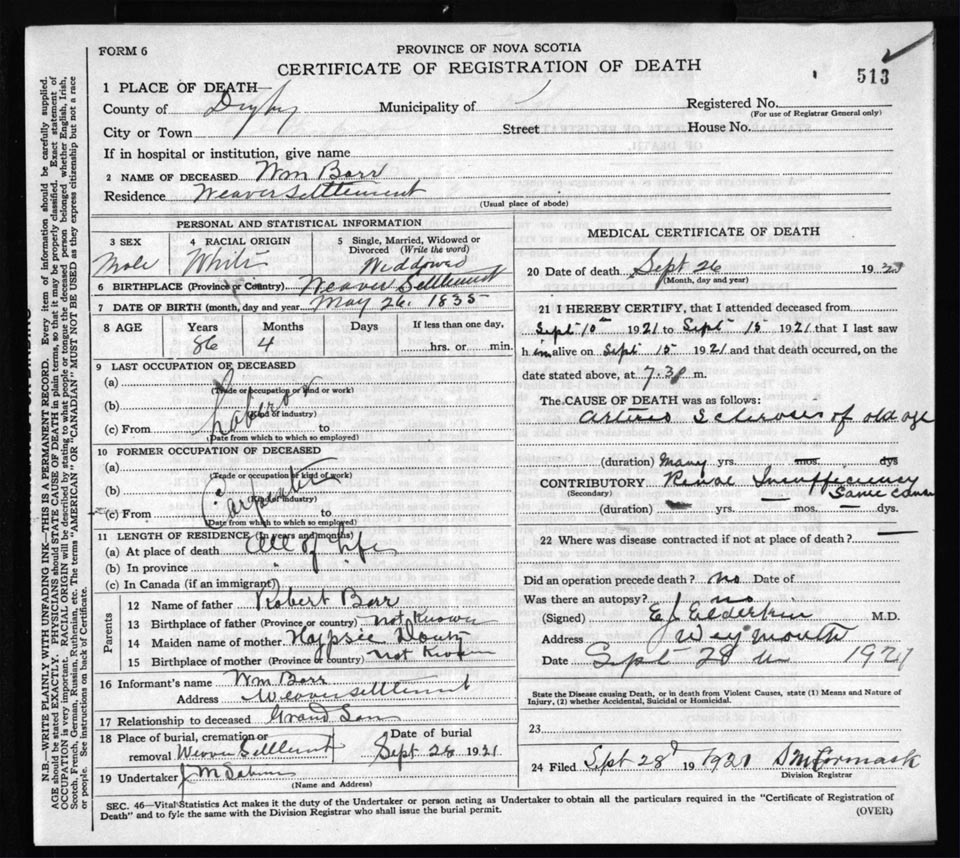 FORM 6
PROVINCE OF NOVA SCOTIA
CERTIFICATE OF REGISTRATION OF DEATH
513
1 PLACE OF DEATH—
County of Digby Municipality of Registered No.
(For use of Registrar General only)
City or Town Street House No.
If in hospital or institution, give name
2 NAME OF DECEASED Wm Barr
Residence Weaver Settlement
(Usual place of abode)
PERSONAL AND STATISTICAL INFORMATION
3 SEX 4 RACIAL ORIGIN 5 Single, Married, Widowed or Divorced (Write the word)
Male White Widdowed
6 BIRTHPLACE (Province or Country) Weaver Settlement
7 DATE OF BIRTH (month, day and year) May 26, 1835
8 AGE Years Months Days If less than one day,
86 4 hrs. or min.
9 LAST OCCUPATION OF DECEASED
(a)
(Trade or occupation or kind of work)
(b) Labror
(Kind of industry)
(c) From to
(Date from which to which so employed)
10 FORMER OCCUPATION OF DECEASED
(a)
(Trade or occupation or kind of work)
(b) Carpenter
(Kind of industry)
(c) From to
(Date from which to which so employed)
11 LENGTH OF RESIDENCE (In years and months)
(a) At place of death All of life
(b) In province
(c) In Canada (if an immigrant)
Parents
12 Name of father Robert Barr
13 Birthplace of father (Province or country) not Known
14 Maiden name of mother
15 Birthplace of mother (Province or country) not Known
16 Informant's name Wm Barr
Address Weaver settlement
17 Relationship to deceased Grand Son
18 Place of burial, cremation or removal Weaver Settlement
Date of burial Sept 28 1921
19 Undertaker
(Name and Address)
MEDICAL CERTIFICATE OF DEATH
20 Date of death Sept 26 19
(Month, day and year)
21 I HEREBY CERTIFY, that I attended deceased from
Sept 10th 1921 to Sept 15 1921 that I last saw
h im alive on Sept 15 1921 and that death occurred, on the
date stated above, at 7.30 m.
The CAUSE OF DEATH was as follows:
Arterio Sclerosis of old age
(duration) Many yrs. mos. dys
CONTRIBUTORY Renal Insufficiency
(Secondary) Same cause
(duration) — yrs. — mos. — dys.
22 Where was disease contracted if not at place of death? —
Did an operation precede death? no Date of
Was there an autopsy? no
(Signed) E J Elderkin M.D.
Address Weymouth
Date Sept 28 1921
State the Disease causing Death, or in death from Violent Causes, state (1) Means and Nature of
Injury, (2) whether Accidental, Suicidal or Homicidal.
23
24 Filed Sept 28 19 1921
Division Registrar
SEC. 46—Vital Statistics Act makes it the duty of the Undertaker or person acting as Undertaker to obtain all the particulars required in the "Certificate of Registration of
Death" and to fyle the same with the Division Registrar who shall issue the burial permit. (OVER)
N.B.—WRITE PLAINLY WITH UNFADING INK—THIS IS A PERMANENT RECORD. Every item of information should be carefully supplied.
AGE should be stated EXACTLY. PHYSICIANS should STATE CAUSE OF DEATH in plain terms, so that it may be properly classified. Exact statement of
OCCUPATION is very important. RACIAL ORIGIN will be described by stating to what people or tongue the deceased person belonged whether English, Irish,
Scotch, French, German, Russian, Ruthenian, etc. The terms "AMERICAN" OR "CANADIAN" MUST NOT BE USED as they express citizenship but not a race
or people. See instructions on back of Certificate.